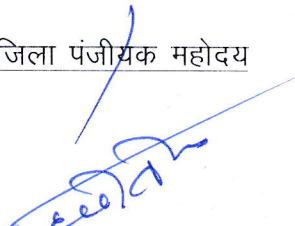 जिला पंजीयक महोदय